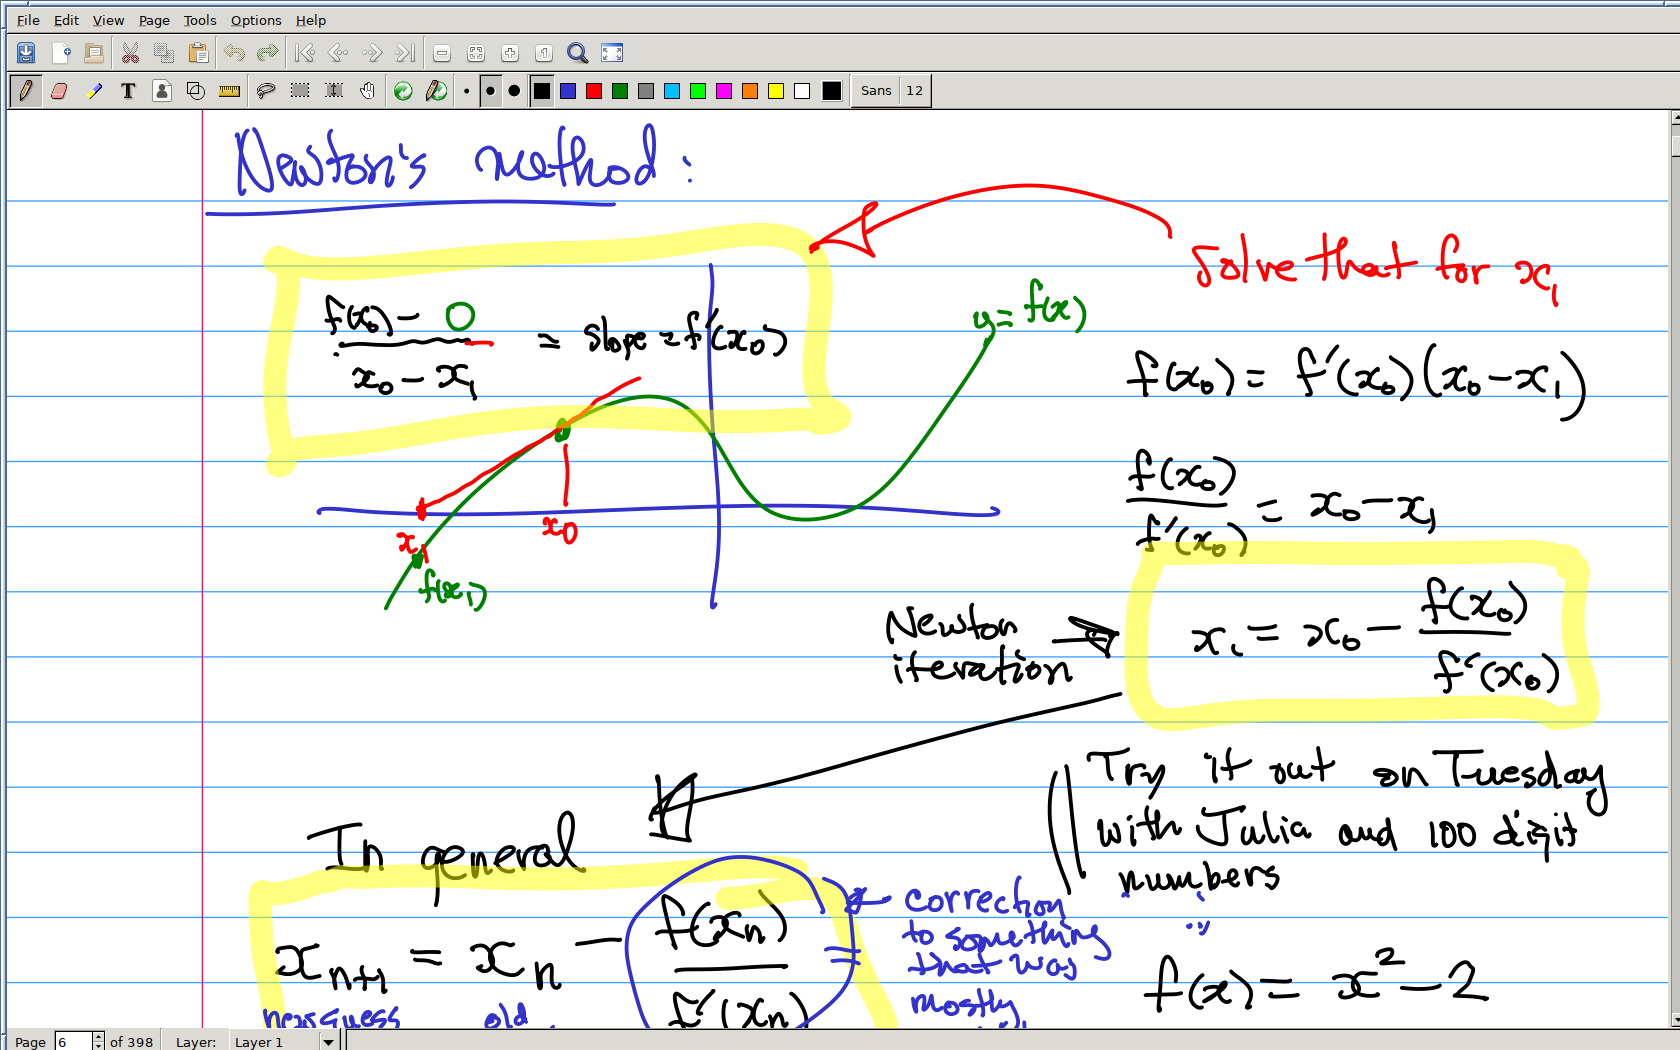 File Edit View Page Tools Options Help
Sans 12
Newton's method:
solve that for x₁
f(x₀) - 0
x₀ - x₁
= slope = f'(x₀)
y = f(x)
x₁
x₀
f(x₁)
f(x₀) = f'(x₀)(x₀ - x₁)
f(x₀)
f'(x₀)
= x₀ - x₁
Newton
iteration
x₁ = x₀ - f(x₀)
f'(x₀)
Try it out on Tuesday
with Julia and 100 digit
numbers
In general
xₙ₊₁ = xₙ - f(xₙ)
f'(xₙ)
new guess old
correction
to something
that was
mostly
f(x) = x² - 2
Page 6 of 398 Layer: Layer 1